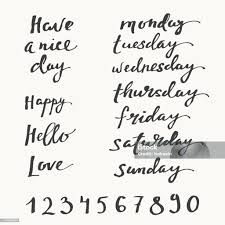 Have
a nice
day
Happy
Hello
Love
monday
tuesday
wednesday
thursday
friday
saturday
sunday
1234567890
iStock